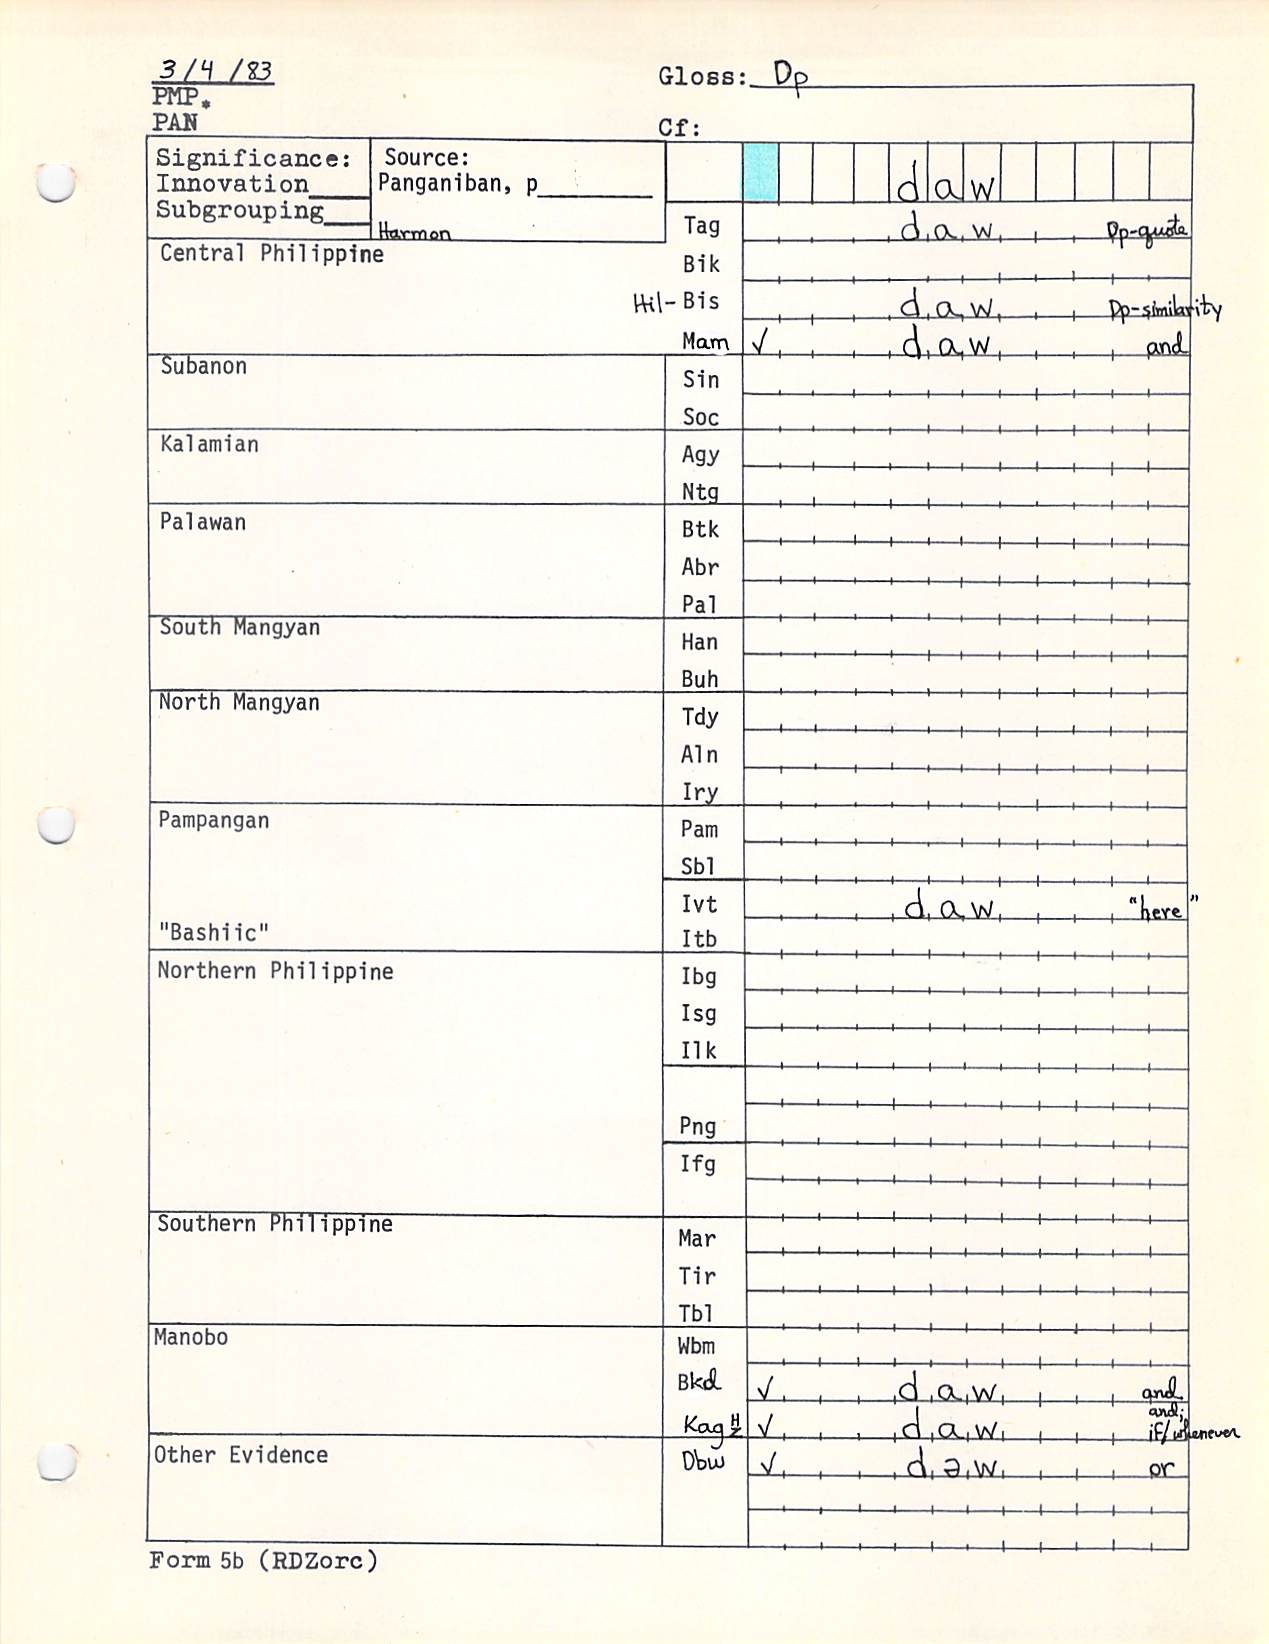 3/4/83
Gloss: Dp
PMP*
PAN
Cf:
Significance:
Innovation____
Subgrouping___
Source:
Panganiban, p________
Harmon
d a w
Tag d a w Dp-quote
Central Philippine
Bik
Hil- Bis d a w Dp-similarity
Mam ✓ d a w and
Subanon
Sin
Soc
Kalamian
Agy
Ntg
Palawan
Btk
Abr
Pal
South Mangyan
Han
Buh
North Mangyan
Tdy
Aln
Iry
Pampangan
Pam
Sbl
Ivt d a w "here"
"Bashiic"
Itb
Northern Philippine
Ibg
Isg
Ilk
Png
Ifg
Southern Philippine
Mar
Tir
Tbl
Manobo
Wbm
Bkd ✓ d a w and
Kag H/Z ✓ d a w and; if/whenever
Other Evidence
Dbw ✓ d ə w or
Form 5b (RDZorc)